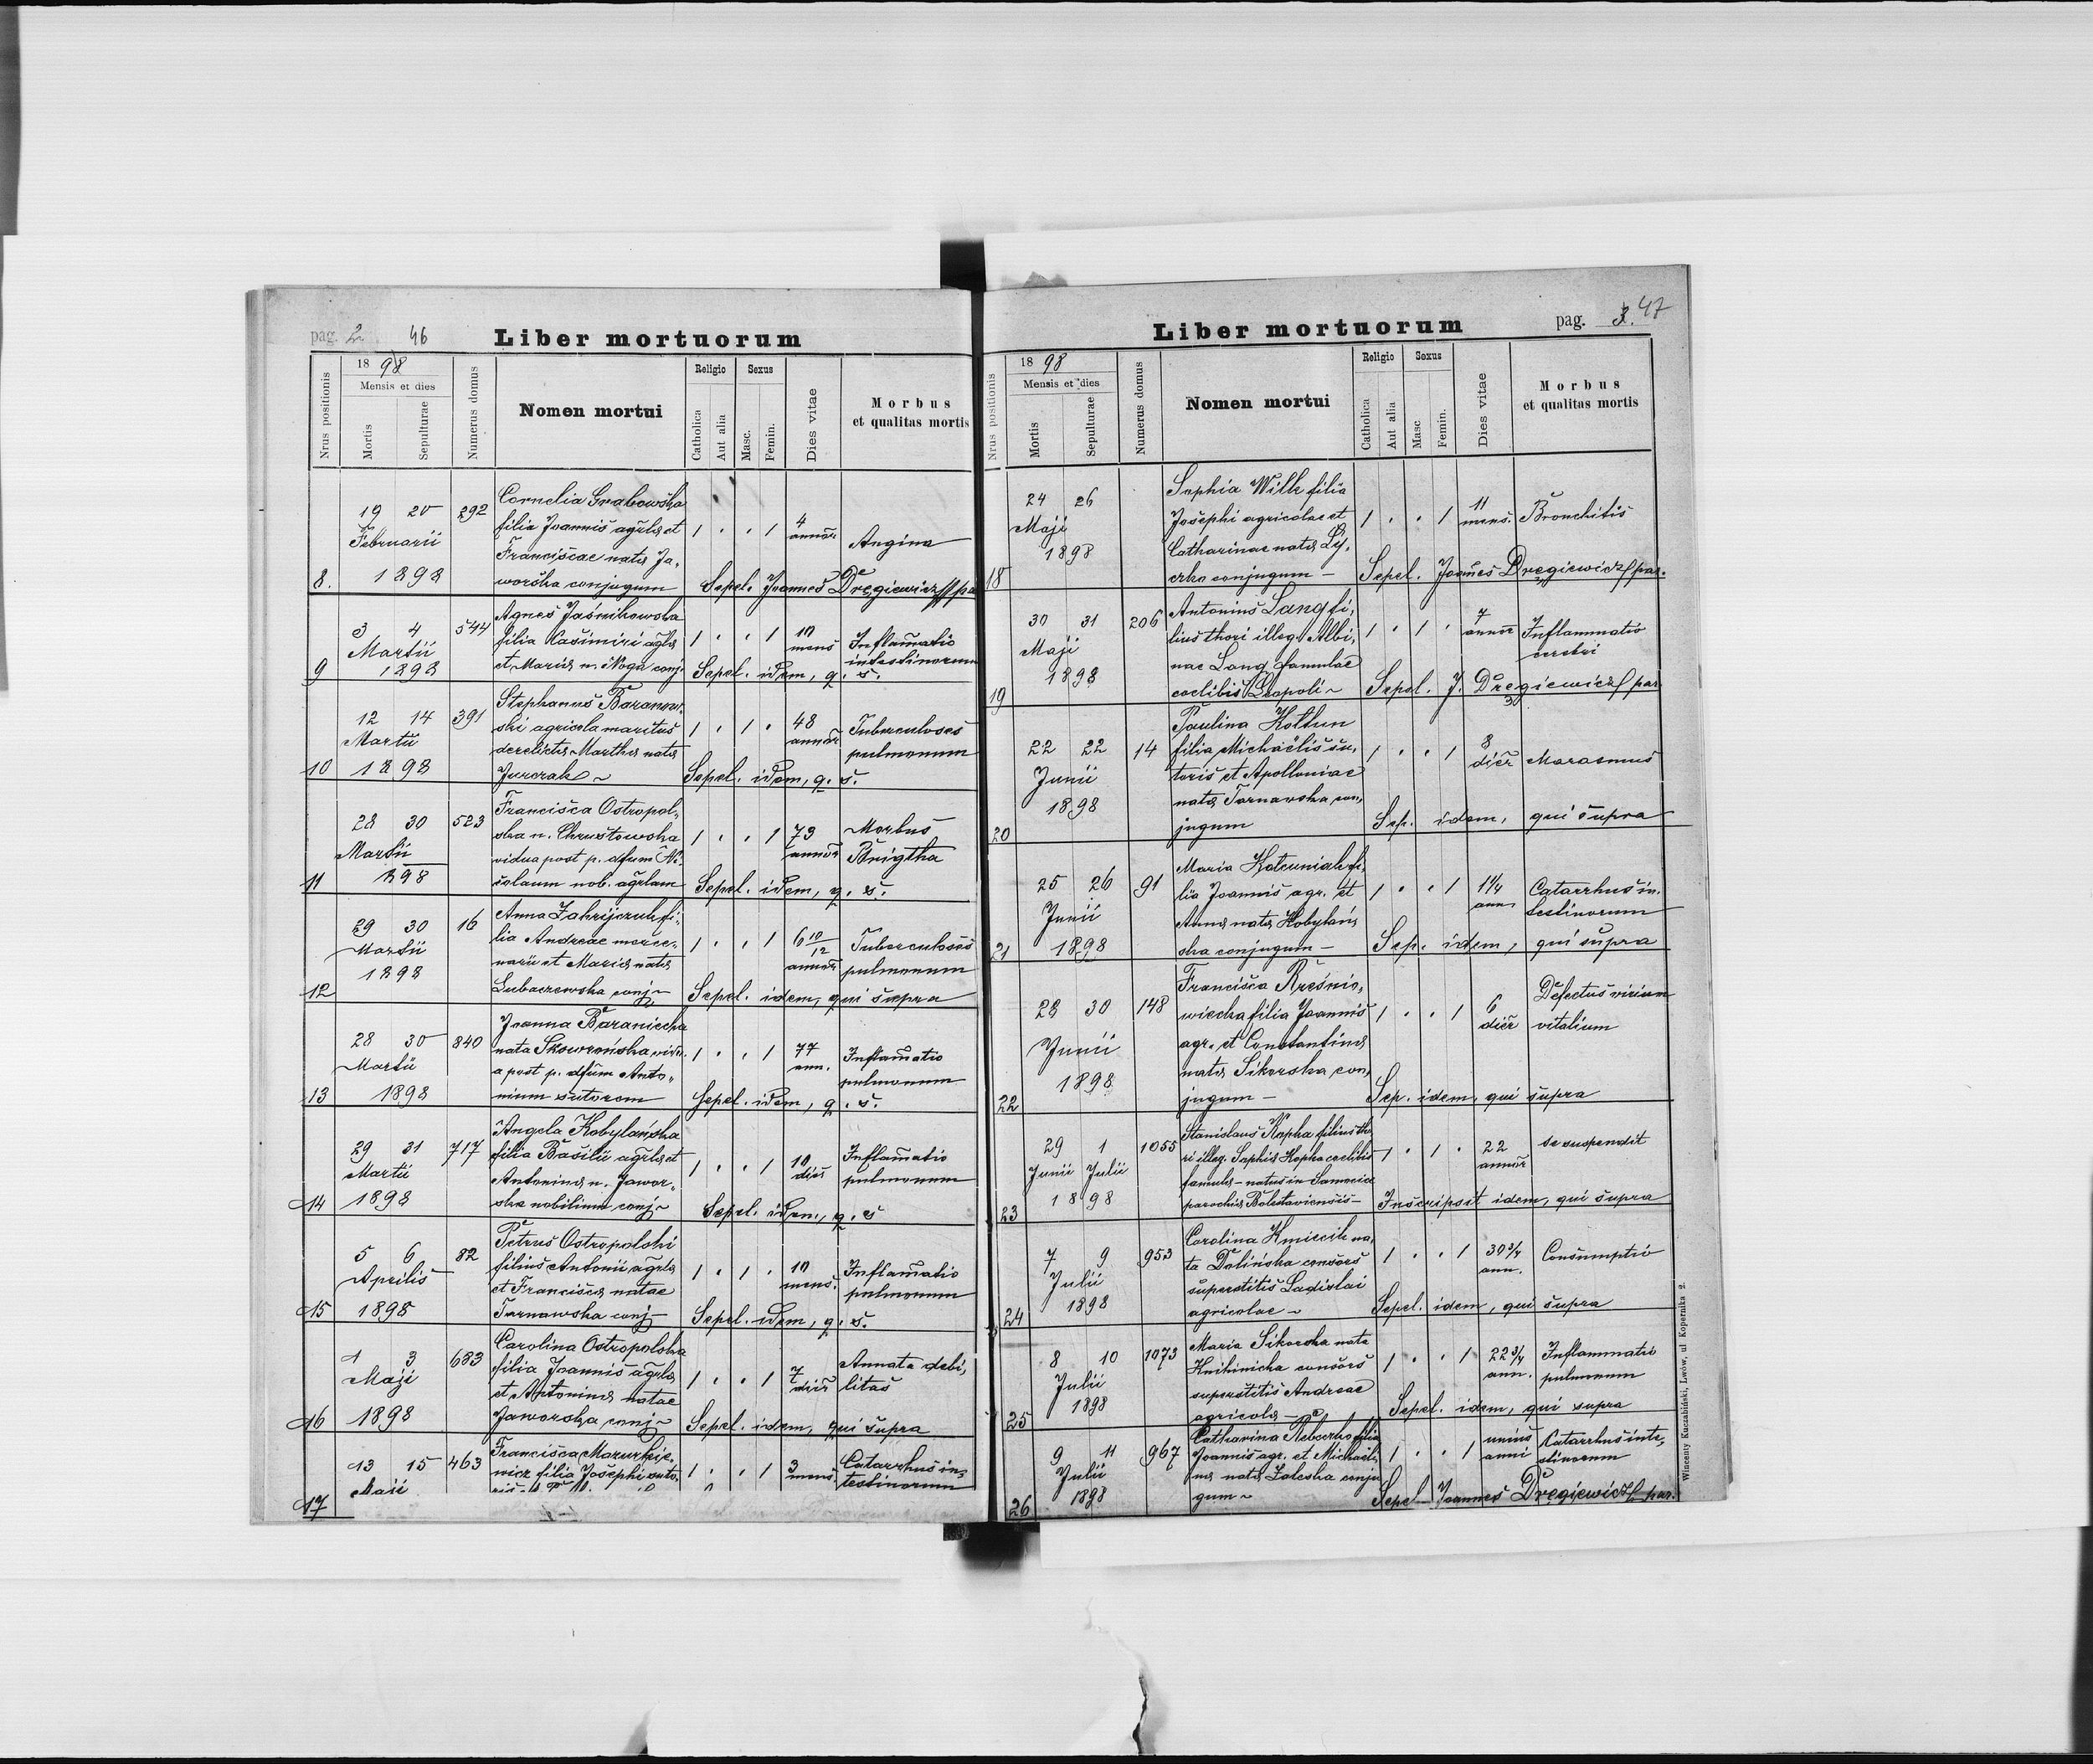 pag. 2. 46
Liber mortuorum
Nrus positionis
1898
Mensis et dies
Mortis
Sepulturae
Numerus domus
Nomen mortui
Religio
Catholica
Aut alia
Sexus
Masc.
Femin.
Dies vitae
Morbus
et qualitas mortis
8.
19 20
Februarii
1898
292
Cornelia Grabowska
filia Joannis agrlae et
Franciscae natae Ja,
worska conjugum
1 . . 1
4
annor
Angina
Sepel. Joannes Dręgiewicz par
9
3 4
Martii
1898
544
Agnes Jaśnikowska
filia Casimiri agrlae
et Mariae n. Noga conj.
1 . . 1
10
mens
Inflamatio
intestinorum
Sepel. idem, q. s.
10
12 14
Martii
1898
391
Stephanus Baranow,
ski agricola maritus
derelictae Marthae natae
Jurczak ~
1 . 1 .
48
annor
Tuberculoses
pulmonum
Sepel. idem, q. s.
11
28 30
Martii
1898
523
Francisca Ostropol,
ska n. Chrustowska
vidua post p. dfum Ni,
colaum nob. agrlam
1 . . 1
73
annor
Morbus
Brigtha
Sepel. idem, q. s.
12
29 30
Martii
1898
16
Anna Zahrijczuk fi,
lia Andreae merce,
narii et Mariae natae
Lubaczewska conj ~
1 . . 1
6 10/12
annor
Tuberculoses
pulmonum
Sepel. idem, qui supra
13
28 30
Martii
1898
840
Joanna Baraniecka
nata Skowrońska vidu,
a post p. dfum Anto,
nium sutorem
1 . . 1
77
ann.
Inflamatio
pulmonum
Sepel. idem, q. s.
14
29 31
Martii
1898
717
Angela Kobylańska
filia Basilii agrlae et
Antoninae n. Jawor,
ska nobilium conj ~
1 . . 1
10
dies
Inflamatio
pulmonum
Sepel. idem, q. s
15
5 6
Aprilis
1898
82
Petrus Ostropolski
filius Antonii agrlae
et Franciscae natae
Tarnawska conj -
1 . 1 .
10
mens.
Inflamatio
pulmonum
Sepel. idem, q. s.
16
1 3
Maji
1898
683
Carolina Ostropolska
filia Joannis agrlae
et Antoninae natae
Jaworska conj ~
1 . . 1
7
dies
Annata debi,
litas
Sepel. idem, qui supra
17
13 15
Maii
463
Francisca Mazurkie,
wicz filia Josephi suto,
1 . . 1
3
mens
Catarrhus in,
testinorum
pag. 3. 47
Liber mortuorum
Nrus positionis
1898
Mensis et dies
Mortis
Sepulturae
Numerus domus
Nomen mortui
Religio
Catholica
Aut alia
Sexus
Masc
Femin.
Dies vitae
Morbus
et qualitas mortis
18
24 26
Maji
1898
Sophia Wilk filia
Josephi agricolae et
Catharinae natae Ły,
czko conjugum -
1 . . 1
11
mens.
Bronchitis
Sepel. Joannes Dręgiewicz par.
19
30 31
Maji
1898
206
Antonius Lang fi,
lius thori illeg. Albi,
nae Lang famulae
coelibis Leopoli ~
1 . 1 .
7
annor
Inflammatio
cerebri
Sepel. J. Dręgiewicz par.
20
22 22
Junii
1898
14
Paulina Kottun
filia Michaëlis su,
toris et Apolloniae
natae Tarnawska con,
jugum
1 . . 1
8
dier
Marasmus
Sep. idem, qui supra
21
25 26
Junii
1898
91
Maria Kotcuniak fi,
lia Joannis agr. et
Annae natae Kobylań,
ska conjugum -
1 . . 1
1 1/4
ann
Catarrhus in,
testinorum
Sep. idem, qui supra
22
28 30
Junii
1898
148
Francisca Kreśnio,
wiecka filia Joannis
agr. et Constantinae
natae Sikorska con,
jugum -
1 . . 1
6
dier
Defectus virium
vitalium
Sep. idem, qui supra
23
29 1
Junii Julii
1898
1055
Stanislaus Kopka filius tho,
ri illeg. Sophiae Kopka coelibis
famulae - natus in Samocice
parochiae Bolestaviensis -
1 . 1 .
22
annor
se suspendit
Inscripsit idem, qui supra
24
7 9
Julii
1898
953
Carolina Kmiecik na,
ta Dolińska consors
superstitis Ladislai
agricolae ~
1 . . 1
30 3/4
ann.
Consumptio
Sepel. idem, qui supra
25
8 10
Julii
1898
1073
Maria Sikorska nata
Knihinicka consors
superstitis Andreae
agricolae -
1 . . 1
22 3/4
ann.
Inflammatio
pulmonum
Sepel. idem, qui supra
26
9 11
Julii
1898
967
Catharina filia
Joannis agr. et Michaëli,
nae natae Zaleska conju
gum ~
1 . . 1
unius
anni
Catarrhus inte,
stinorum
Sepel Joannes Dręgiewicz par.
Wincenty Kuczabiński, Lwów, ul Kopernika 2.